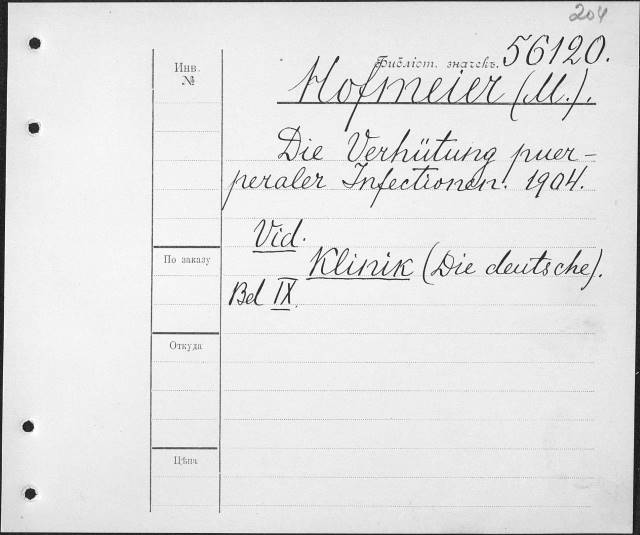 204
Инв.
№
Библіот. значекъ. 56120.
Hofmeier (M.).
Die Verhütung puer-
peraler Infectionen. 1904.
Vid.
По заказу
Klinik (Die deutsche).
Bd IX.
Откуда
Цѣна